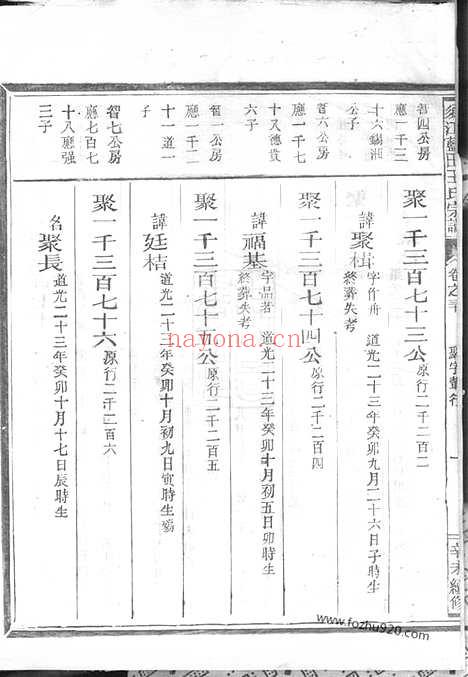 須江藍田王氏宗譜
卷之
聚字輩行
一
辛未續修
智四公房
應一千三
十六錫湘
公子
聚一千三百七十三公原行二千二百二
諱聚楫字作舟 道光二十三年癸卯九月二十六日子時生
終葬失考
智六公房
應一千七
十八德貴
六子
聚一千三百七十四公原行二千二百四
諱福基字品若 道光二十三年癸卯十月初五日卯時生
終葬失考
智一公房
應一千二
十一道一
子
聚一千三百七十五公原行二千二百五
諱廷桔 道光二十三年癸卯十月初九日寅時生殤
智七公房
應七百七
十八應强
三子
聚一千三百七十六原行二千二百六
名聚長道光二十三年癸卯十月十七日辰時生
nayona.cn
www.fozhu920.com